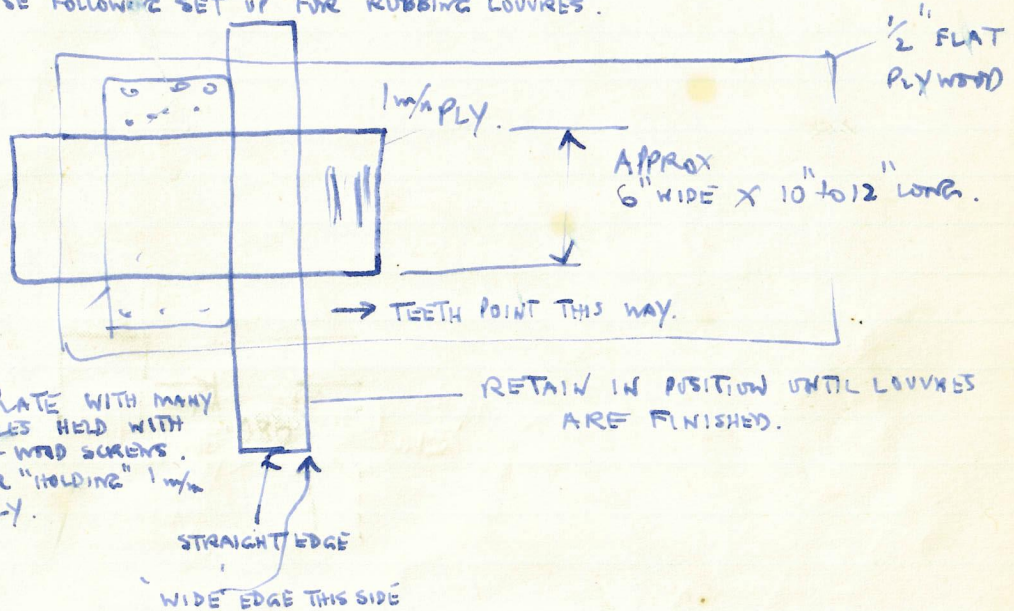 SE FOLLOWING SET UP FOR RUBBING LOUVRES.
1/2" FLAT
PLYWOOD
1 m/m PLY.
APPROX
6" WIDE X 10" to 12" LONG.
→ TEETH POINT THIS WAY.
RETAIN IN POSITION UNTIL LOUVRES
ARE FINISHED.
LATE WITH MANY
LES HELD WITH
WOOD SCREWS.
R "HOLDING" 1 m/m
LY.
STRAIGHT EDGE
'WIDE' EDGE THIS SIDE